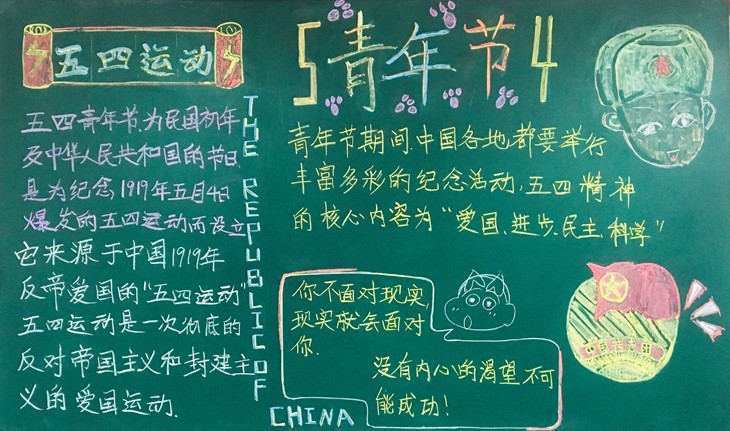 五四运动
五四青年节为民国初年
及中华人民共和国的节日
是为纪念1919年五月4日
爆发的五四运动而设立
它来源于中国1919年
反帝爱国的“五四运动”
五四运动是一次彻底的
反对帝国主义和封建主
义的爱国运动.
THE REPUBLIC OF
CHINA
5青年节4
青年节期间,中国各地都要举行
丰富多彩的纪念活动,五四精神
的核心内容为“爱国、进步、民主、科学”
你不面对现实,
现实就会面对
你.
没有内心的渴望不可
能成功!
中国共青团